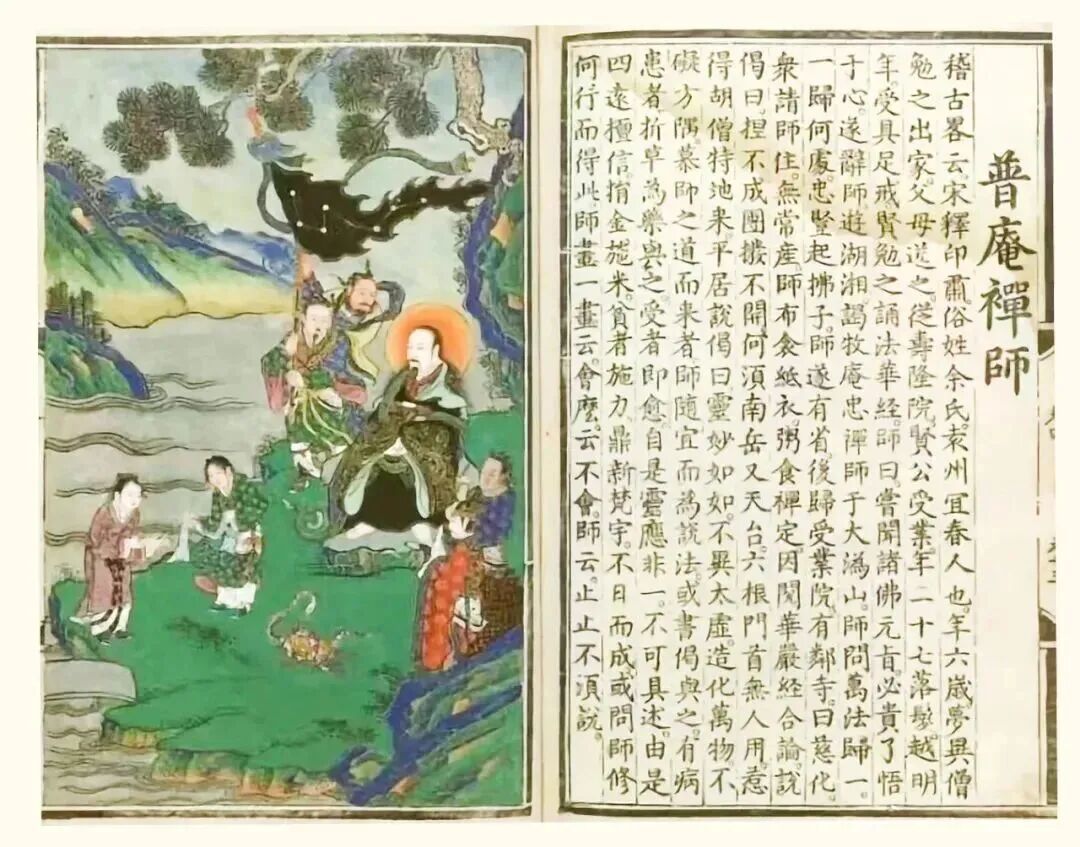 普庵禪師
稽古畧云宋釋印肅俗姓余氏袁州宜春人也年六歲夢異僧
勉之出家父母送之從壽隆院賢公受業年二十七落髮越明
年受具足戒賢勉之誦法華經師曰嘗聞諸佛元旨必貴了悟
于心遂辭師遊湖湘謁牧庵忠禪師于大溈山師問萬法歸一
一歸何處忠豎起拂子師遂有省後歸受業院有鄰寺曰慈化
衆請師住無常産師布衾紙衣粥食禪定因閱華嚴經合論說
偈曰揑不成團撥不開何須南岳又天台六根門首無人用惹
得胡僧特池來平居說偈曰靈妙如如不異太虛造化萬物不
礙方隅慕師之道而来者師隨宜而為說法或書偈與之有病
患者折草為藥與之受者即愈自是靈應非一不可具述由是
四遠檀信捐金施米貧者施力鼎新梵宇不日而成或問師修
何行而得此師畫一畫云會麽云不會師云止止不須說